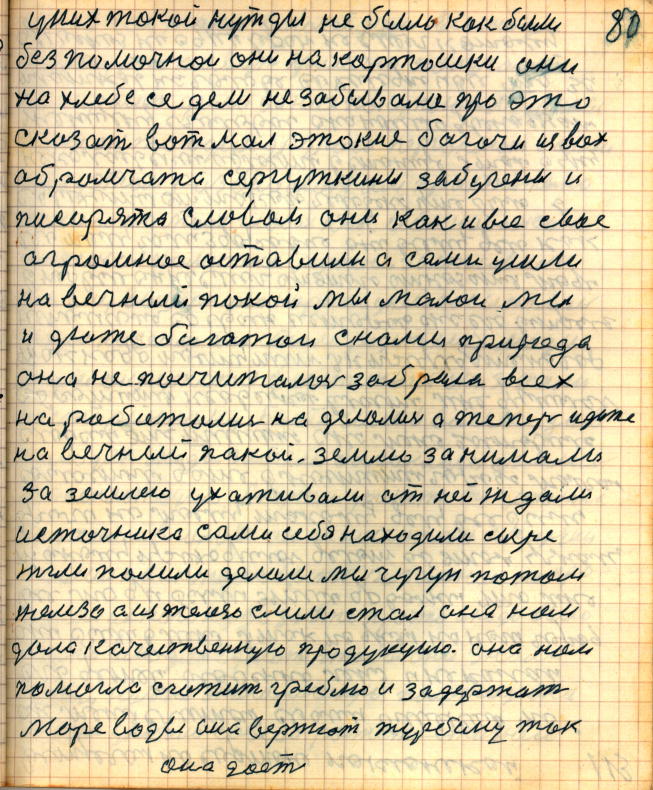 80
уних токой нужды не было как были
безпомочной они на картошки они
на хлебе седели незабывали про это
сказат вот мал этокие багочи
сергуткины забурены и
писорята словом они как и все свое
огромное оставили а сами ушли
на вечный покой мы малои мы
и даже багатои снами природа
она не посчиталас забрала всех
на работалис на делалис а тепер идите
на вечный пакой. землю занимали
за землею ухаживали от ней ждали
источника сами себя находили сыре
жгли полили делали мы чугун потом
железо а из железо слили стал она нам
дала качественную продукцию. она нам
помогла зготит греблю и задержат
море воды она вержот турбину ток
она дает